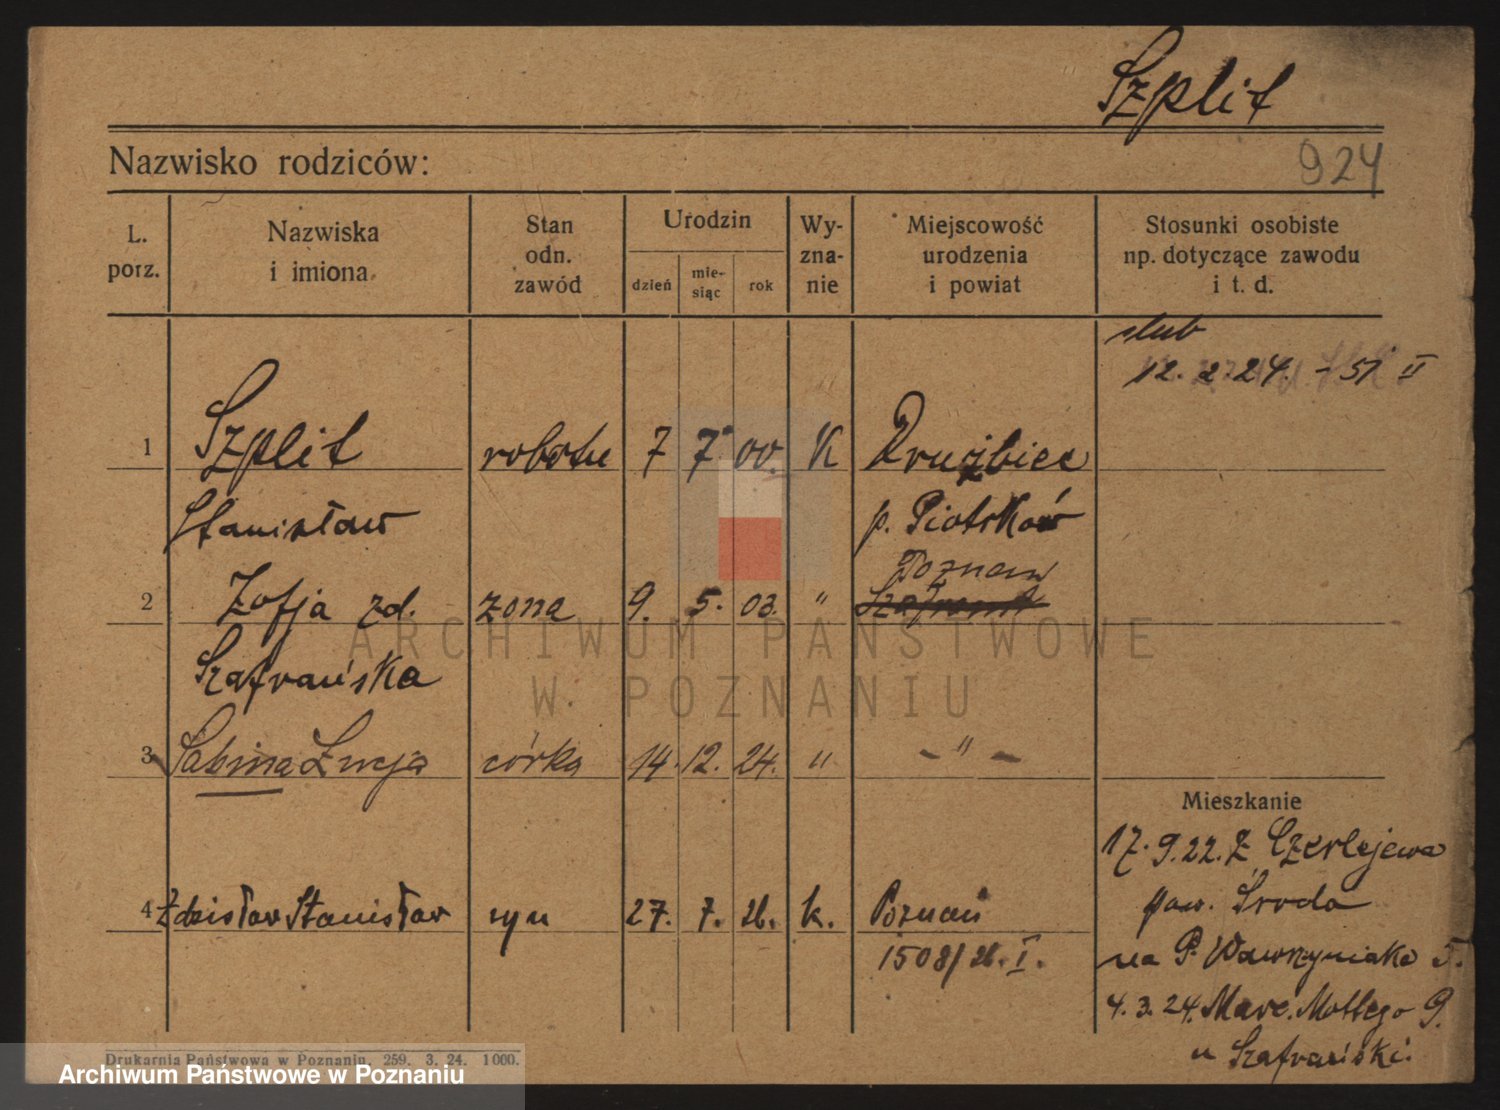 Szplit
Nazwisko rodziców:
924
L. porz.
Nazwiska i imiona
Stan odn. zawód
Urodzin
dzień
mie- siąc
rok
Wy- zna- nie
Miejscowość urodzenia i powiat
Stosunki osobiste np. dotyczące zawodu i t. d.
slub
12. 2. 24. - 51 II
1 Szplit robotn 7 7. 00. K Drużbice
Stanisław p. Piotrków
Poznań
2 Zofja zd. żona 9. 5. 03. "
Szafrańska
3 Sabina Łucja córka 14. 12. 24. " - " -
Mieszkanie
17. 9. 22. Z Czerlejewa
pow. Środa
4 Zdzisław Stanisław syn 27. 7. 26. k. Poznań
1508/26. I.
na P. Wawrzyniaka 5.
4. 3. 24. Marc. Mottego 9.
u Szafrański.
ARCHIWUM PAŃSTWOWE
W POZNANIU
Drukarnia Państwowa w Poznaniu. 259. 3. 24. 1000.
Archiwum Państwowe w Poznaniu